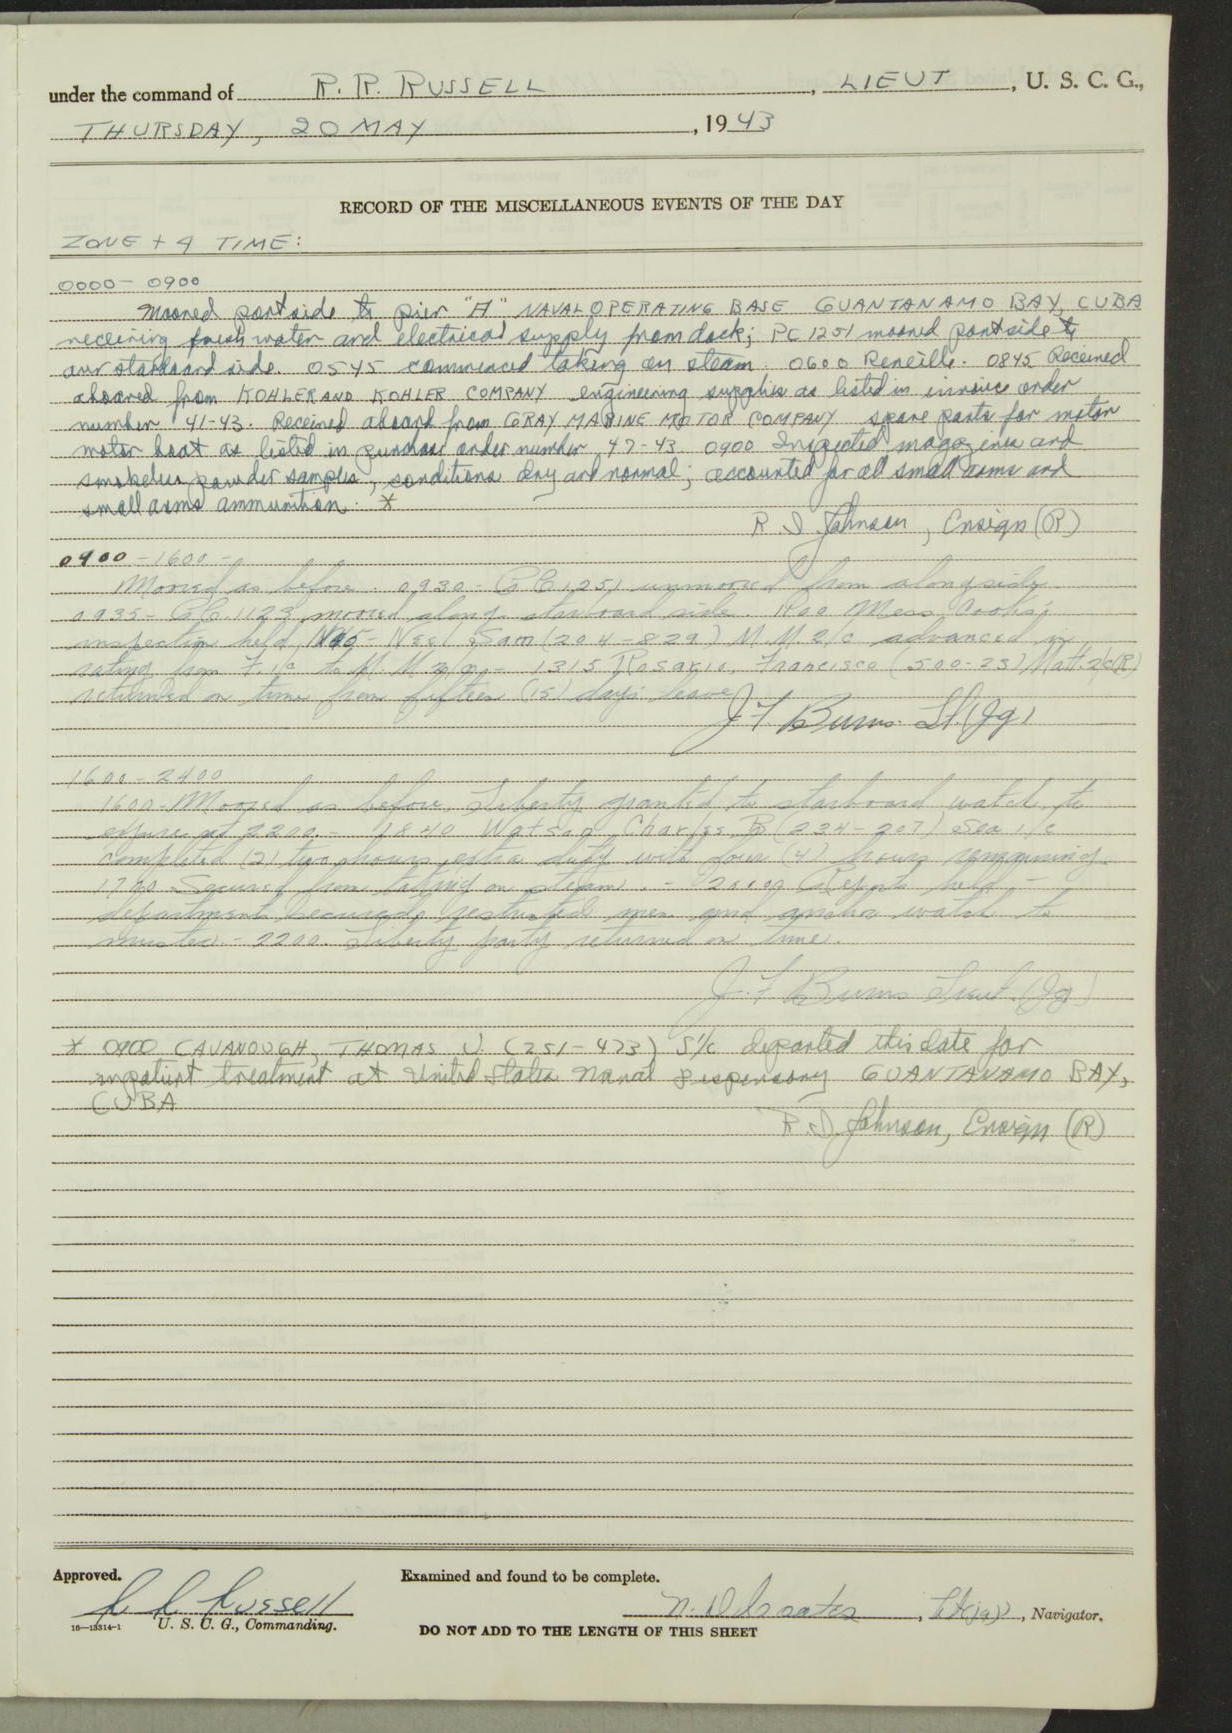 under the command of R. R. RUSSELL, LIEUT, U. S. C. G.,
THURSDAY, 20 MAY, 1943
RECORD OF THE MISCELLANEOUS EVENTS OF THE DAY
ZONE + 4 TIME:
0000 - 0900
Moored portside to pier "A" NAVAL OPERATING BASE GUANTANAMO BAY, CUBA
receiving fresh water and electrical supply from dock; PC 1251 moored portside to
our starboard side. 0545 commenced taking on steam. 0600 Reveille. 0845 Received
aboard from KOHLER AND KOHLER COMPANY engineering supplies as listed in invoice order
number 41-43. Received aboard from GRAY MARINE MOTOR COMPANY spare parts for motor
motor boat as listed in purchase order number 47-43. 0900 Inspected magazines and
smokeless powder samples, conditions dry and normal; accounted for all small arms and
small arms ammunition. *
R. D. Johnson, Ensign (R)
0900 - 1600 -
Moored as before. 0930 - PC 1251 unmoored from alongside
0935 - PC 1123 moored along starboard side. Mess Cooks'
inspection held, Sam (204-829) M.M.2/c advanced in
rating from F.1/c to M.M.2/c - 1315 Rosario, Francisco (500-23) Matt.2/c(R)
returned on time from fifteen (15) days leave
J F Burns Lt.(Jg)
1600 - 2400
1600 - Moored as before. Liberty granted to starboard watch to
expire at 2200. - 1840 Watson, Charles B (234-207) Sea 1/c
completed (2) two hours extra duty with four (4) hours remaining.
Secured from taking on steam. - 2000 Reports held -
departments secured, restricted men and anchor watch to
muster. - 2200. Liberty party returned on time.
J. F Burns Lieut. (Jg)
* 0900 CAVANOUGH, THOMAS J. (251-473) S1/c departed this date for
inpatient treatment at United States Naval Dispensary GUANTANAMO BAY,
CUBA
R. D. Johnson, Ensign (R)
Approved. Examined and found to be complete.
R R Russell Lt(jg), Navigator.
16-13314-1 U. S. C. G., Commanding. DO NOT ADD TO THE LENGTH OF THIS SHEET